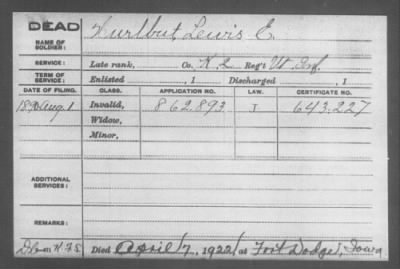 DEAD
NAME OF SOLDIER: Hurlbut Lewis E.
SERVICE: Late rank, Co. K, 2 Reg't Vt Inf.
TERM OF SERVICE: Enlisted , 1 Discharged , 1
DATE OF FILING. CLASS. APPLICATION NO. LAW. CERTIFICATE NO.
1890 Aug. 1 Invalid, 862893 I 643.227
Widow,
Minor,
ADDITIONAL SERVICES:
REMARKS:
Died April 7, 1922 at Fort Dodge, Iowa